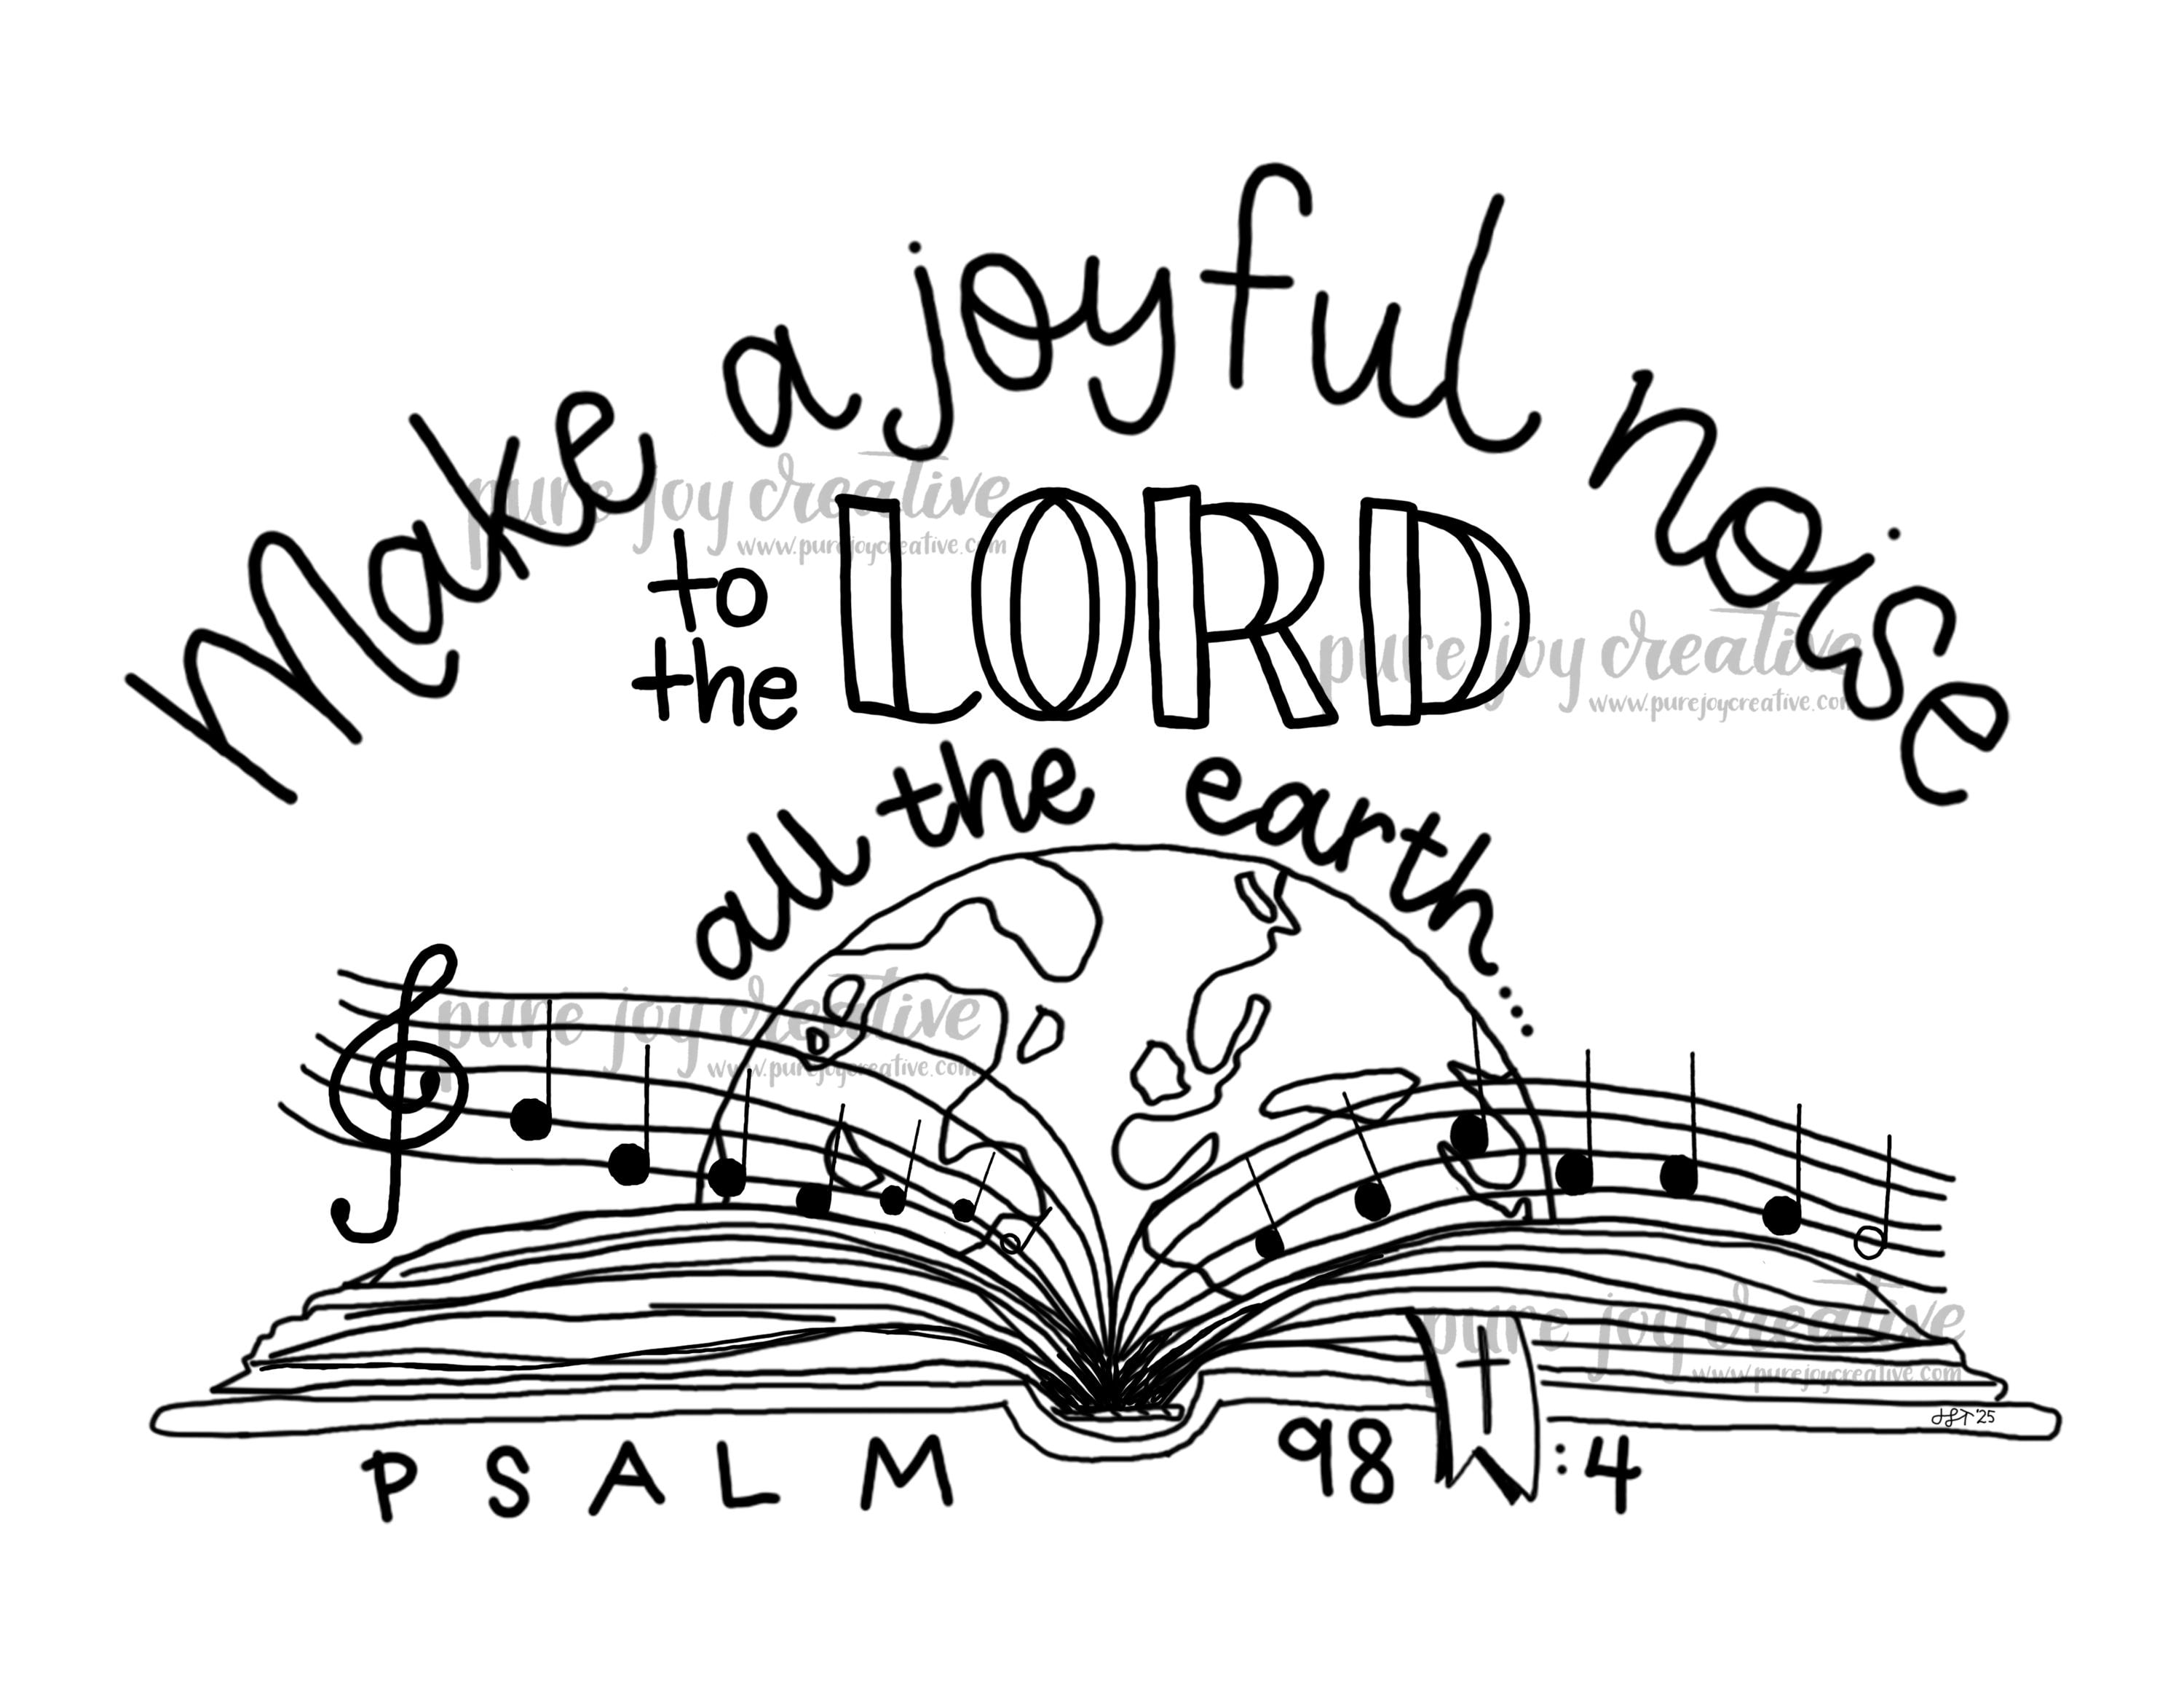 Make a joyful noise
pure joy creative
www.purejoycreative.com
to
the
LORD
pure joy creative
www.purejoycreative.com
all the earth...
pure joy creative
www.purejoycreative.com
pure joy creative
www.purejoycreative.com
PSALM 98:4